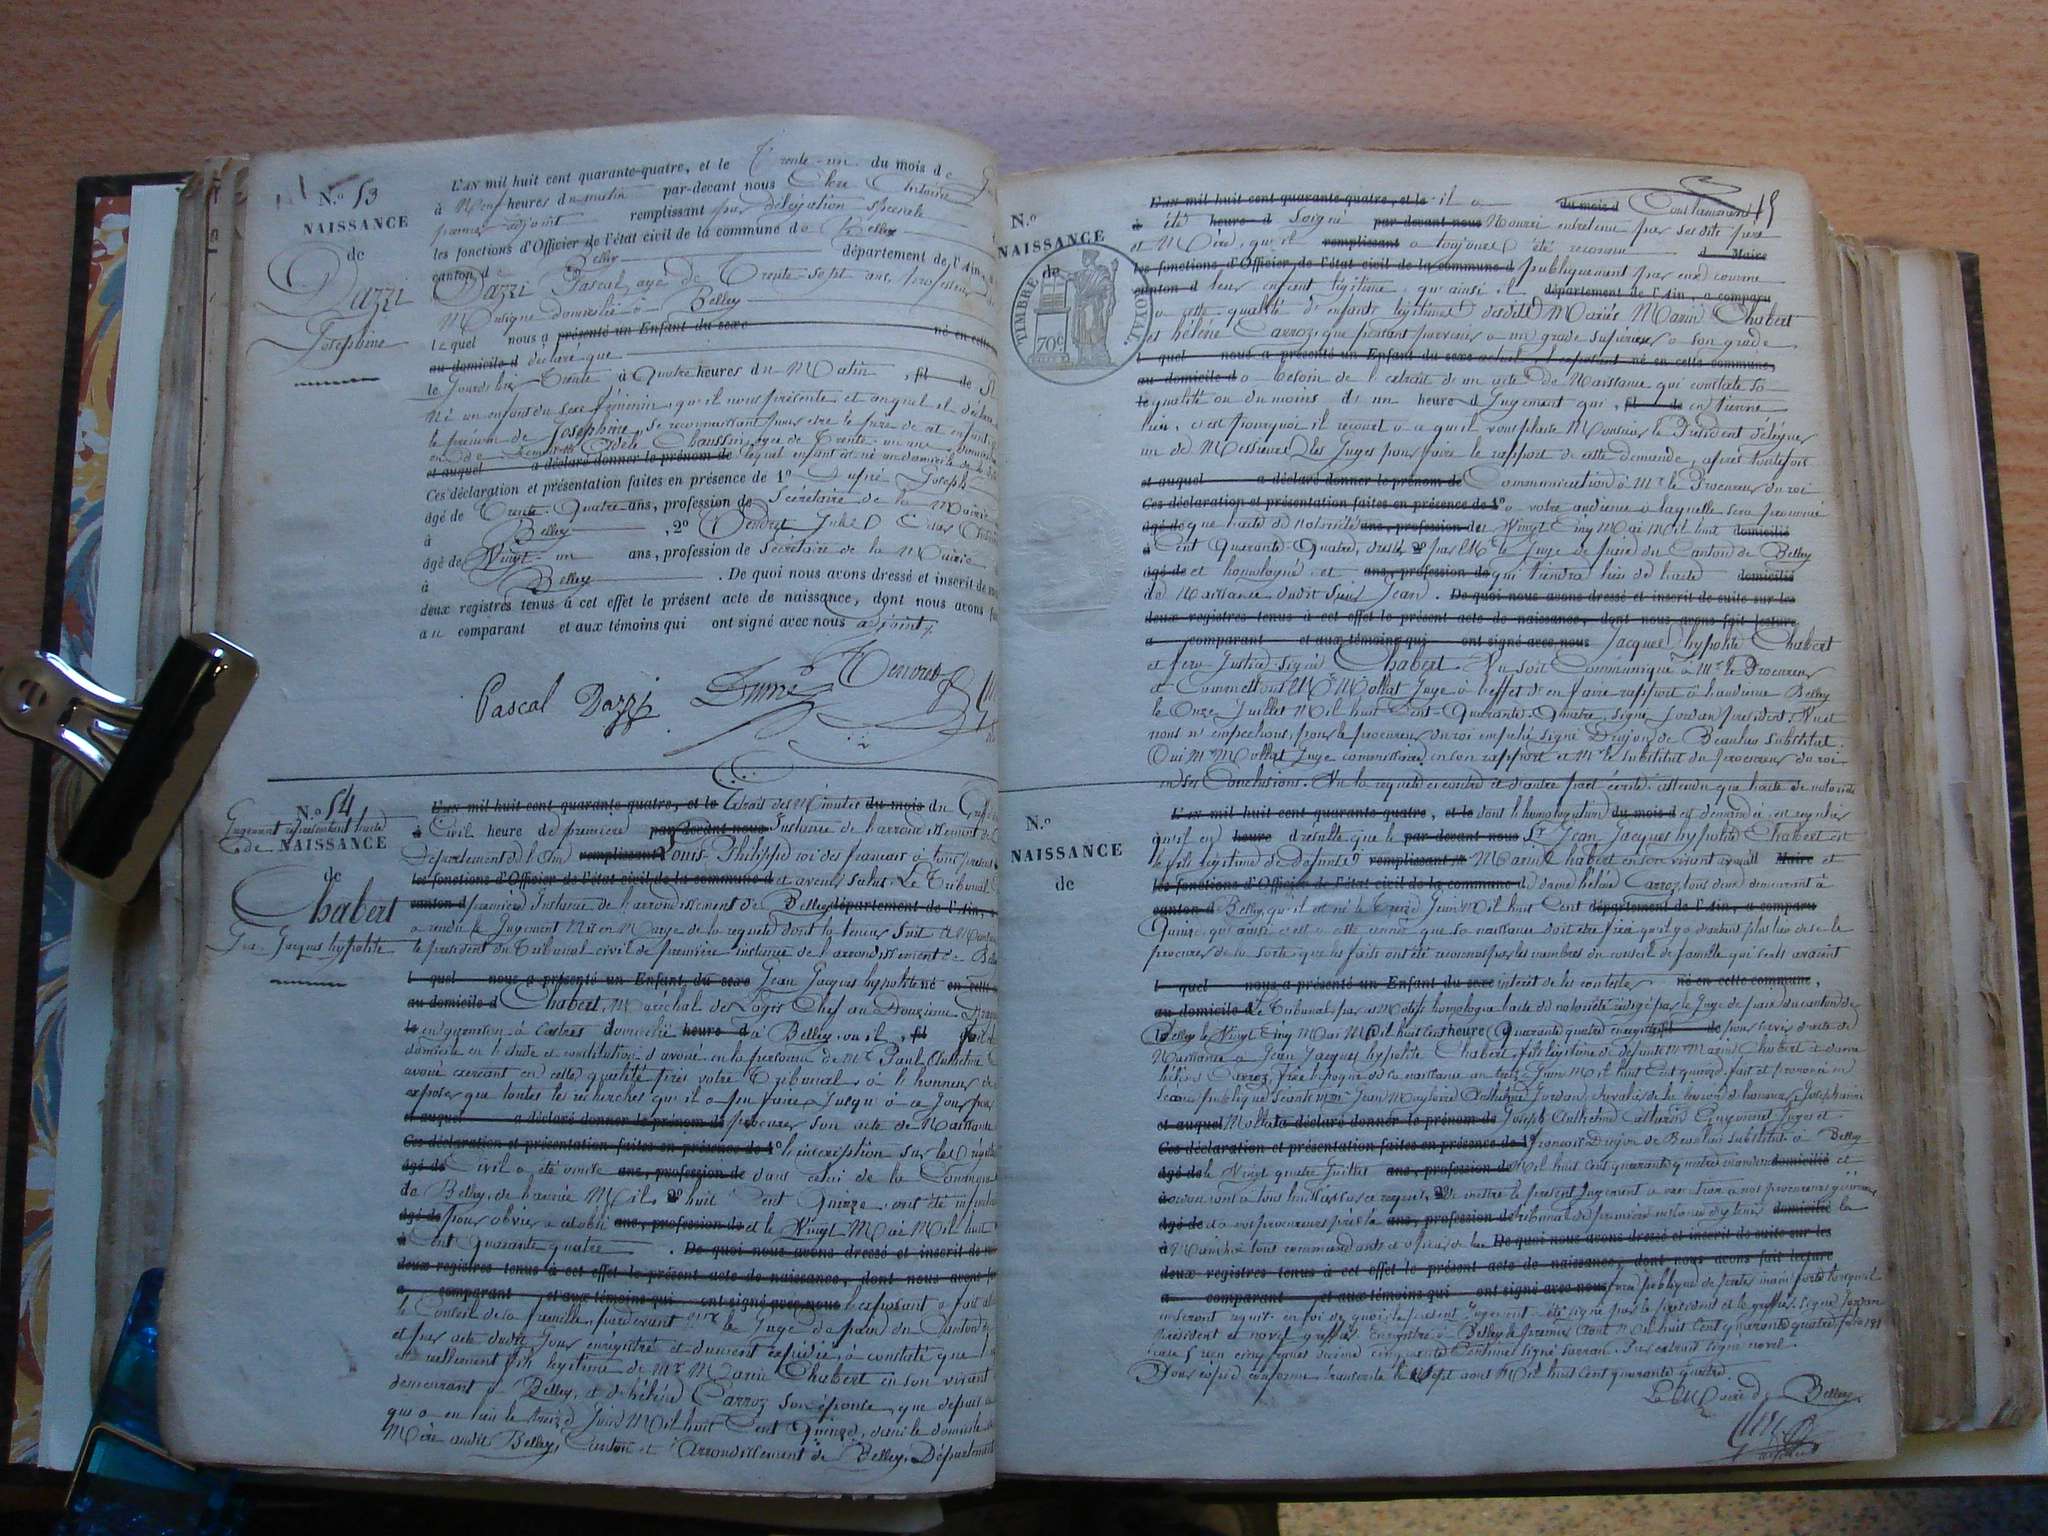 N.º 53
NAISSANCE
de
Dazzi
Josephine
L'AN mil huit cent quarante-quatre, et le Trente-un du mois de
à Neuf heures du matin par-devant nous
premier adjoint remplissant par délégation spéciale
les fonctions d'Officier de l'état civil de la commune de Belley
canton d Belley département de l'Ain,
Dazzi Pascal, agé de Trente-sept ans, professeur de
Musique domicilié à Belley
lequel nous a présenté un Enfant du sexe né en cette
au domicile d déclaré que
le Jourd'hier Trente à Quatre heures du Matin, fil de
Né un enfant du sexe féminin, qu'il nous présente et auquel il déclare
le prénom de Josephine, se reconnaissant pour etre le père de cet enfant
agée de Trente-un ans
et auquel a déclaré donner le prénom de lequel enfant est né au domicile de
Ces déclaration et présentation faites en présence de 1º Dufné Joseph
âgé de Trente-Quatre ans, profession de Sécrétaire de la Mairie
à Belley, 2º Jules César
âgé de Vingt-un ans, profession de Sécrétaire de la Mairie
à Belley. De quoi nous avons dressé et inscrit de
deux registres tenus à cet effet le présent acte de naissance, dont nous avons
au comparant et aux témoins qui ont signé avec nous adjoint
Pascal Dazzi
N.º 54
Jugement représentant l'acte
de NAISSANCE
de
Chabert
Jean Jacques hypolite
L'AN mil huit cent quarante-quatre, et le Extrait des Minutes du mois du
à Civil heure de première par-devant nous Instance de l'arrondissement de
Département de l'Ain remplissant Louis-Philippe roi des français à tous présens
les fonctions d'Officier de l'état civil de la commune d et avenir salut. Le Tribunal
canton d première Instance de l'arrondissement de Belley département de l'Ain,
a rendu le Jugement Mis en Marge de la requete dont la teneur suit
le président du Tribunal civil de première instance de l'arrondissement de
l quel nous a présenté un Enfant du sexe Jean Jacques hypolite né en cette
au domicile d Chabert, Maréchal des Logis Chef au Douzième
le en garnison à Castres domicilié heure d à Belley, ou il, fil
domicile en l'étude et constitution d'avoué en la personne de Mr Paul Anthelme
avoué exercant en cette qualité près votre Tribunal, à l'honneur de
exposer que toutes les recherches qu'il a pu faire Jusqu'à ce Jour pour
et auquel a déclaré donner le prénom de procurer son acte de Naissance
Ces déclaration et présentation faites en présence de 1º l'inscription sur les
âgé de Civil a été omise ans, profession de dans celui de la Commune
de Belley, de l'année Mil 2º huit Cent Quinze, ont été
âgé de pour obvier a cet oubli ans, profession de et le Vingt Mai Mil huit
à Cent Quarante quatre. De quoi nous avons dressé et inscrit de
deux registres tenus à cet effet le présent acte de naissance, dont nous avons
a comparant et aux témoins qui ont signé avec nous l'exposant a fait
le Conseil de sa famille, pardevant le Juge de paix du Canton
et par acte dudit Jour enregistré et duement expédié, a constaté que
réellement fils légitime de Mr Marin Chabert en son vivant
demeurant à Belley, et d'hélène Carroz son épouse, que depuis
qui a eu lieu le treize Juin Mil huit Cent Quinze, dans le domicile
Mère audit Belley, Canton et Arrondissement de Belley, Département
45
N.º
NAISSANCE
de
TIMBRE ROYAL
70c
L'AN mil huit cent quarante-quatre, et le il a du mois d Constamment
à été heure d Soigné par devant nous Nourri entretenu par sesdits père
et Mère, qu'il remplissant a toujours été reconnu d Maire
les fonctions d'Officier de l'état civil de la commune d publiquement par eux comme
canton d leur enfant légitime, qu'ainsi il département de l'Ain, a comparu
a cette qualité d'enfant légitime desdits Mariés Marin Chabert
et hélène Carroz, que pensant parvenir a un grade supérieur a son grade
l quel nous a présenté un Enfant du sexe actuel, l'exposant né en cette commune,
au domicile d a besoin de l'extrait de un acte de Naissance qui constate sa
le qualité ou du moins de un heure d Jugement qui, fil de en tienne
lieu, c'est pourquoi il recourt a ce qu'il vous plaise Monsieur le Président déléguer
un de Messieurs les Juges pour faire le rapport de cette demande, après toutefois
et auquel a déclaré donner le prénom de Communication à Mr le Procureur du roi
Ces déclaration et présentation faites en présence de 1º a votre audience à laquelle sera prononcé
âgé de que l'acte de Notoriété ans, profession de du Vingt Cinq Mai Mil huit domicilié
à Cent Quarante-Quatre, dressé 2º par Mr le Juge de paix du Canton de Belley
âgé de et homologué et ans, profession de qui tiendra lieu de l'acte domicilié
de Naissance dudit Sieur Jean. De quoi nous avons dressé et inscrit de suite sur les
deux registres tenus à cet effet le présent acte de naissance, dont nous avons fait lecture
a comparant et aux témoins qui ont signé avec nous Jacques hypolite Chabert
et fera Justice signé Chabert. Vu soit Communiqué à Mr le Procureur
et Commettons Mr Mollat Juge à l'effet d'en faire rapport à l'audience Belley
le Onze Juillet Mil huit Cent-Quarante-Quatre, signé Jordan président. Vu et
nous n'empechons, pour le procureur du roi empêché signé Dujon de Beaulieu substitut.
Oui Mr Mollat Juge commissaire en son rapport et Mr le substitut du procureur du roi
en ses Conclusions. Vu la requete ci contre et d'autre part écrite attendu que l'acte de notoriété
N.º
NAISSANCE
de
L'AN mil huit cent quarante-quatre, et le dont l'homologation du mois d est demandée, est régulier
qu'il en heure d résulte que le par-devant nous Sr Jean Jacques hypolite Chabert est
le fils légitime de defunts remplissant Marin Chabert en son vivant avocat Maire et
les fonctions d'Officier de l'état civil de la commune d de dame hélène Carroz, tous deux demeurant à
canton d Belley, qu'il est né le treize Juin Mil huit Cent département de l'Ain, a comparu
Quinze, qu'ainsi c'est à cette époque que sa naissance doit etre fixée qu'il y a d'autant plus lieu de se le
procurer de la sorte, que les faits ont été reconnus par les membres du conseil de famille qui seuls avaient
l quel nous a présenté un Enfant du sexe intérêt de les contester né en cette commune,
au domicile d Le Tribunal, par ces Motifs homologue l'acte de notoriété rédigé par le Juge de paix du canton de
Belley le Vingt Cinq Mai Mil huit cent heure Quarante quatre enregistré fil de pour servir d'acte de
Naissance a Jean Jacques hypolite Chabert, fils légitime de defunts Mr Marin Chabert et dame
hélène Carroz, fixe l'époque de sa naissance au treize Juin Mil huit Cent quinze, fait et prononcé en
séance publique séants Mrs Anthelme Jordan, chevalier de la légion d'honneur,
et auquel Mollat a déclaré donner le prénom de Joseph Anthelme Juges et
Ces déclaration et présentation faites en présence de 1º françois Dujon de Beaulieu substitut. à Belley
âgé de le Vingt quatre Juillet ans, profession de Mil huit Cent quarante quatre mandons domicilié et
à ordonnons à tous huissiers sur ce requis, 2º de mettre le présent Jugement à exécution a nos procureurs généraux
âgé de et a nos procureurs près les ans, profession de tribunaux de première instance d'y tenir domicilié la
à Main, à tous commandants et officiers de la De quoi nous avons dressé et inscrit de suite sur les
deux registres tenus à cet effet le présent acte de naissance, dont nous avons fait lecture
a comparant et aux témoins qui ont signé avec nous force publique de preter main forte lorsqu'ils
en seront requis. en foi de quoi le présent Jugement a été signé par le président et le greffier, signé Jordan
président et novel greffier. Enregistré à Belley le premier Aout Mil huit Cent quarante quatre folio 181
case 5 reçu cinq francs décime cinquante centimes signé
Pour copie conforme, transcrite le sept aout Mil huit Cent quarante quatre.
Le Maire de Belley